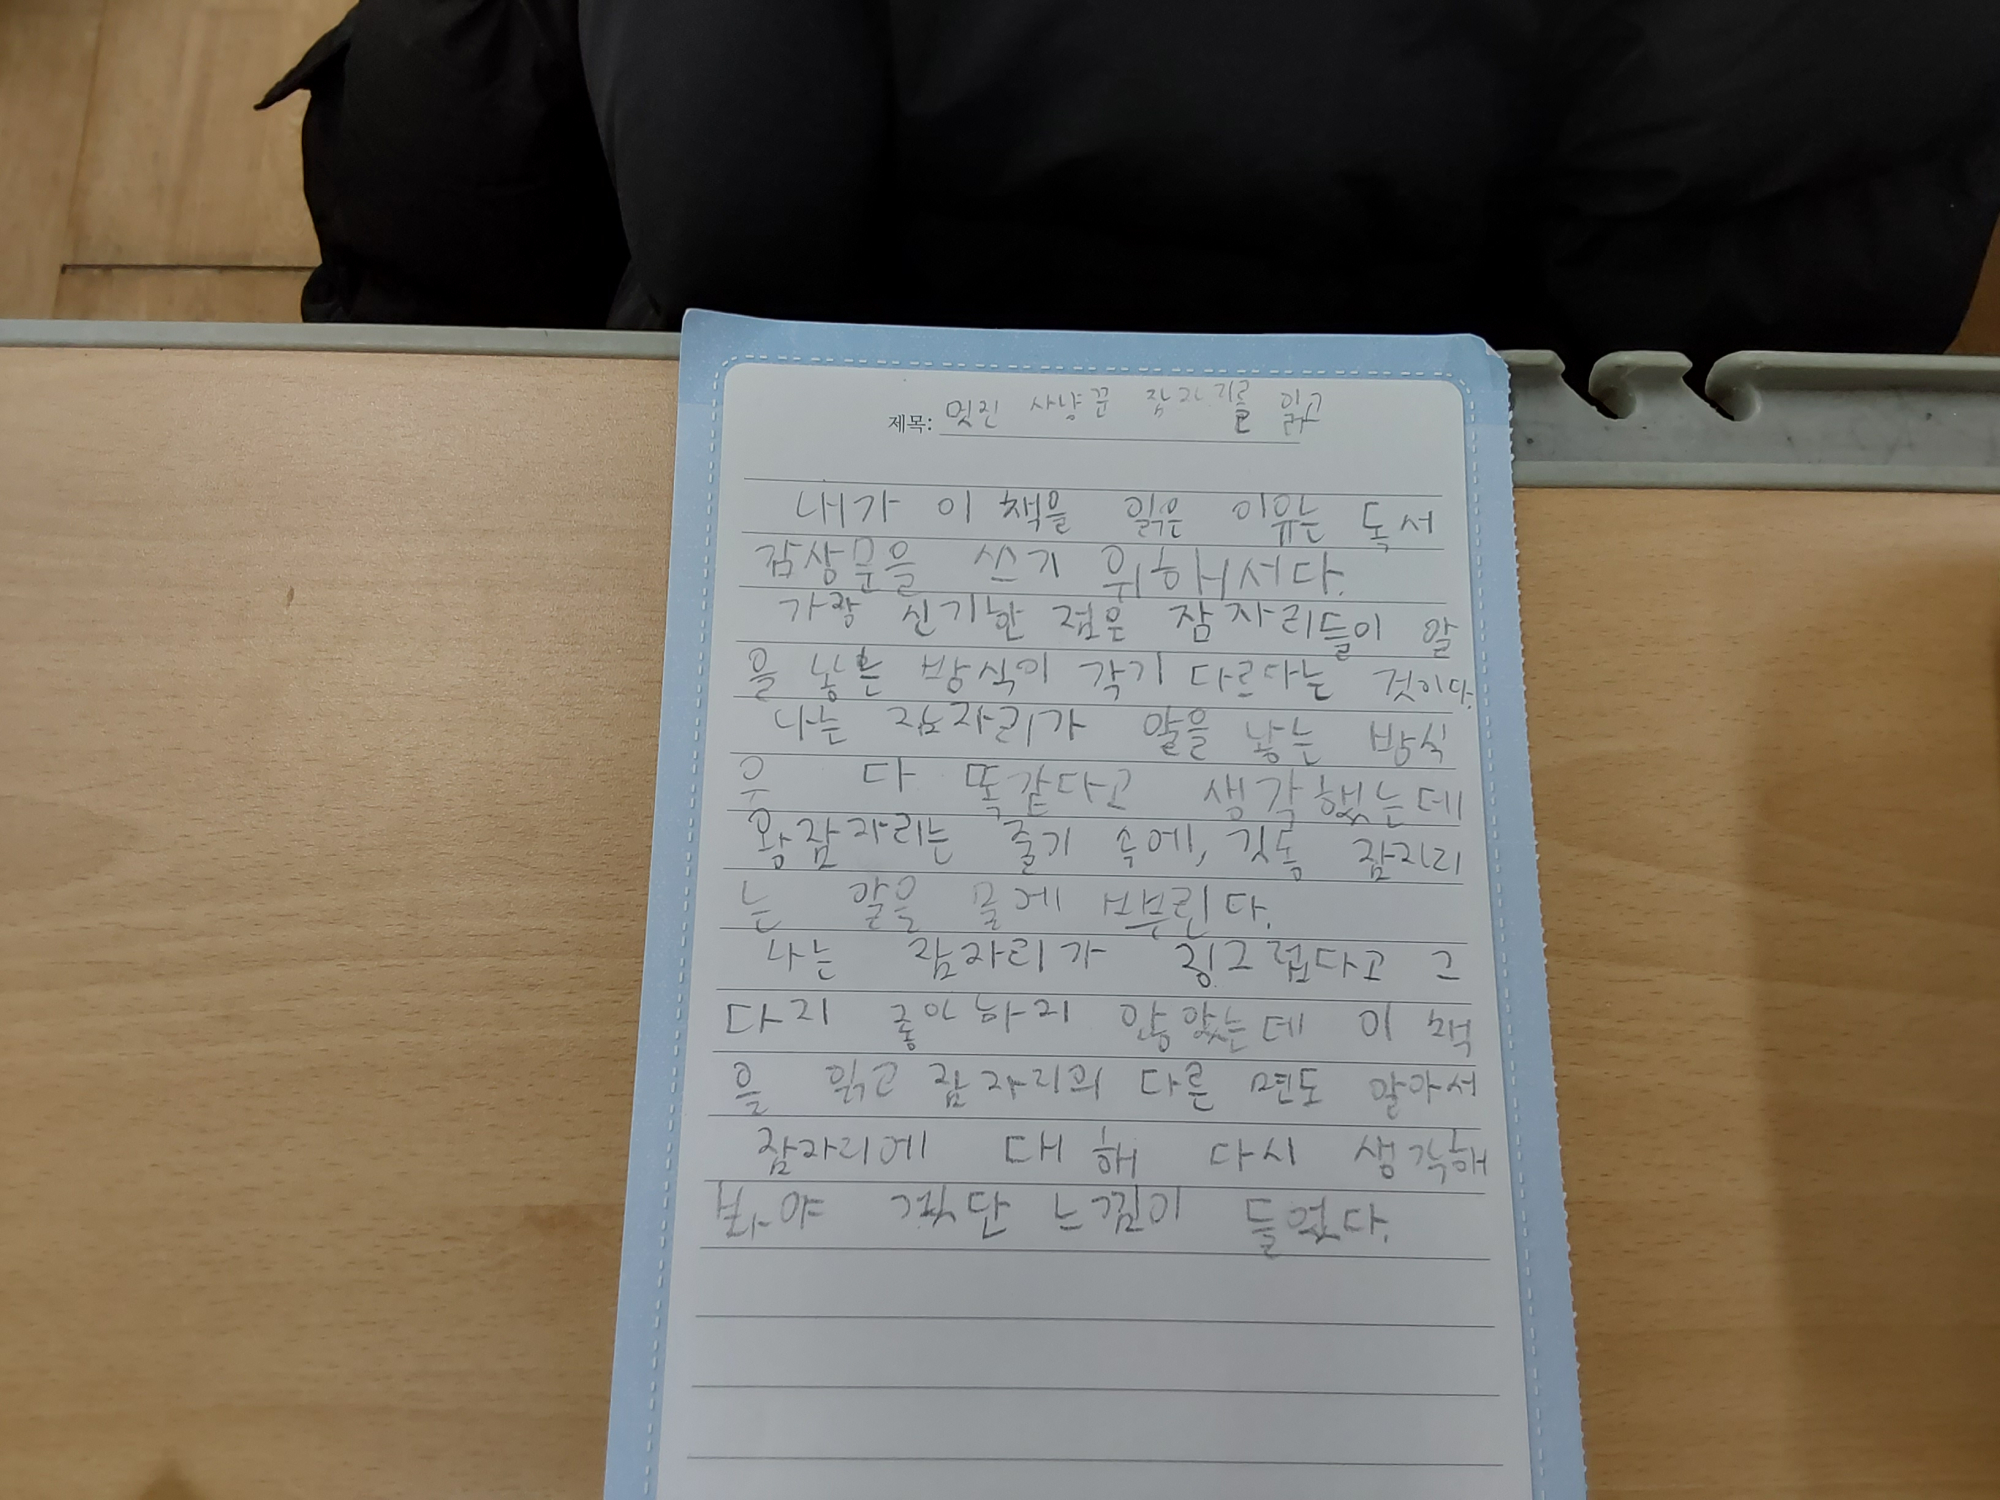 제목: 멋진 사냥꾼 잠자리를 읽고
내가 이 책을 읽은 이유는 독서
감상문을 쓰기 위해서다.
가장 신기한 점은 잠자리들이 알
을 낳는 방식이 각기 다르다는 것이다.
나는 잠자리가 알을 낳는 방식
은 다 똑같다고 생각했는데
왕잠자리는 줄기 속에, 깃동 잠자리
는 알을 물에 뿌린다.
나는 잠자리가 징그럽다고 그
다지 좋아하지 않았는데 이 책
을 읽고 잠자리의 다른 면도 알아서
잠자리에 대해 다시 생각해
봐야 겠단 느낌이 들었다.